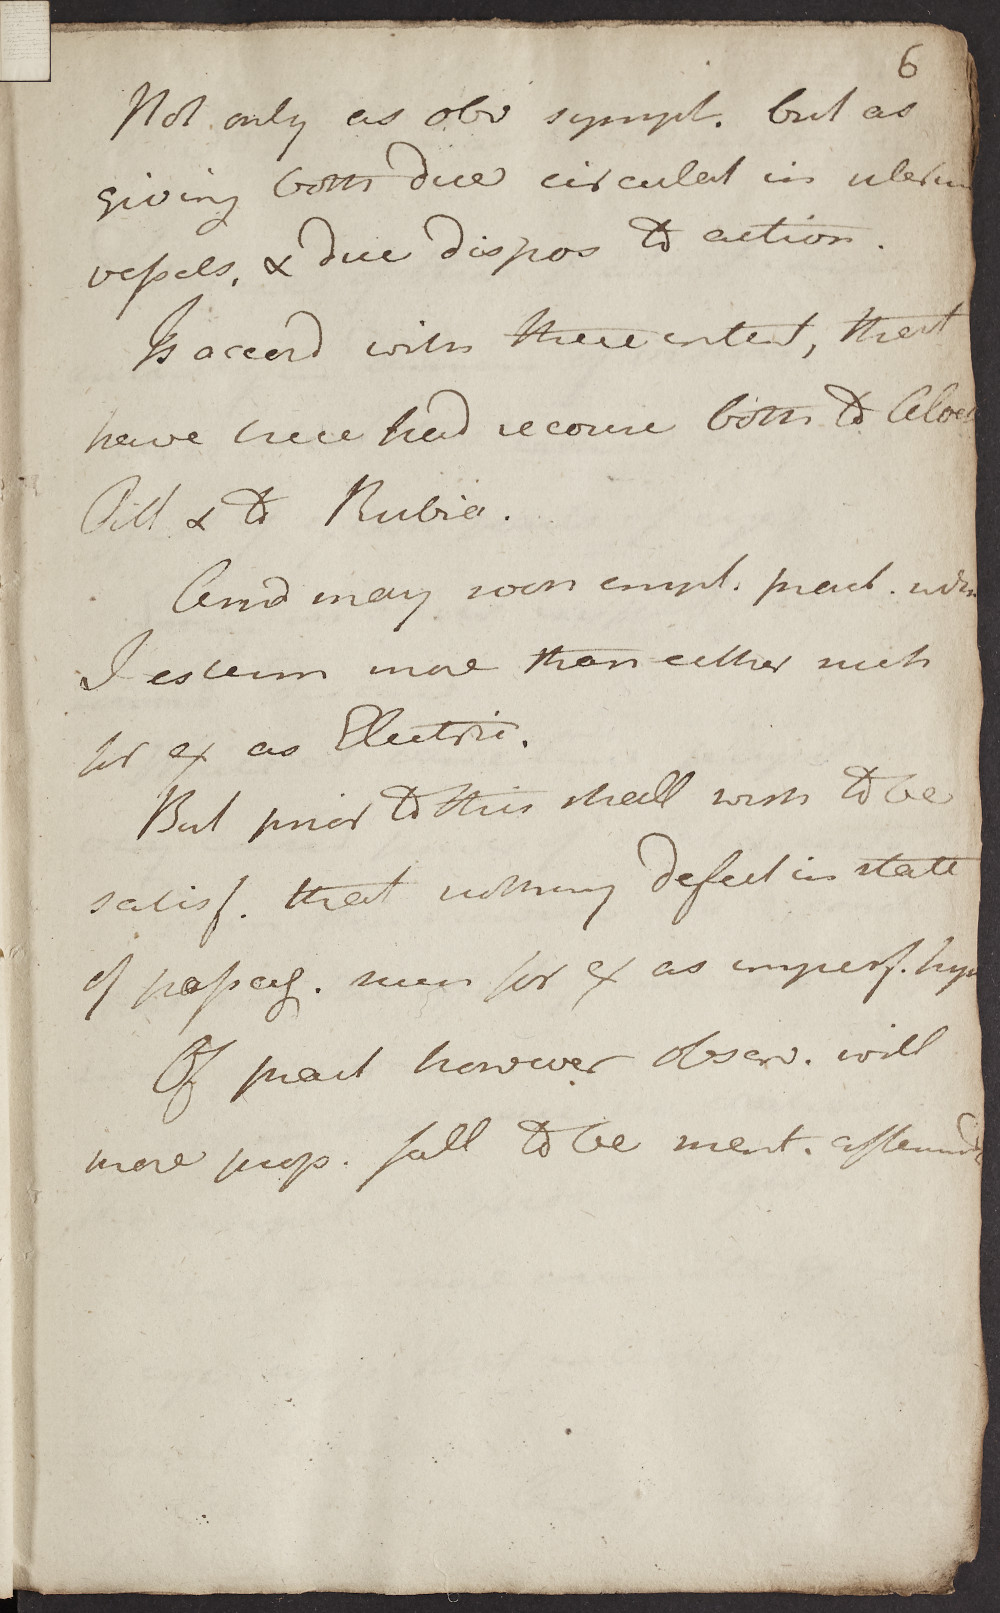 6
Not only as obv sympt. but as
giving both due circulat in uterin
vessels, & due dispos to action.
Is accord with these intent, that
have here had recourse both to Aloet
Pill & to Rubia.
And may soon empl. pract. which
I esteem more than either such
for ex as Electric.
But prior to this shall wish to be
satisf. that nothing defect in state
of passag. such for ex as imperf. hym
Of pract however observ. will
more prop. fall to be ment. afterwards